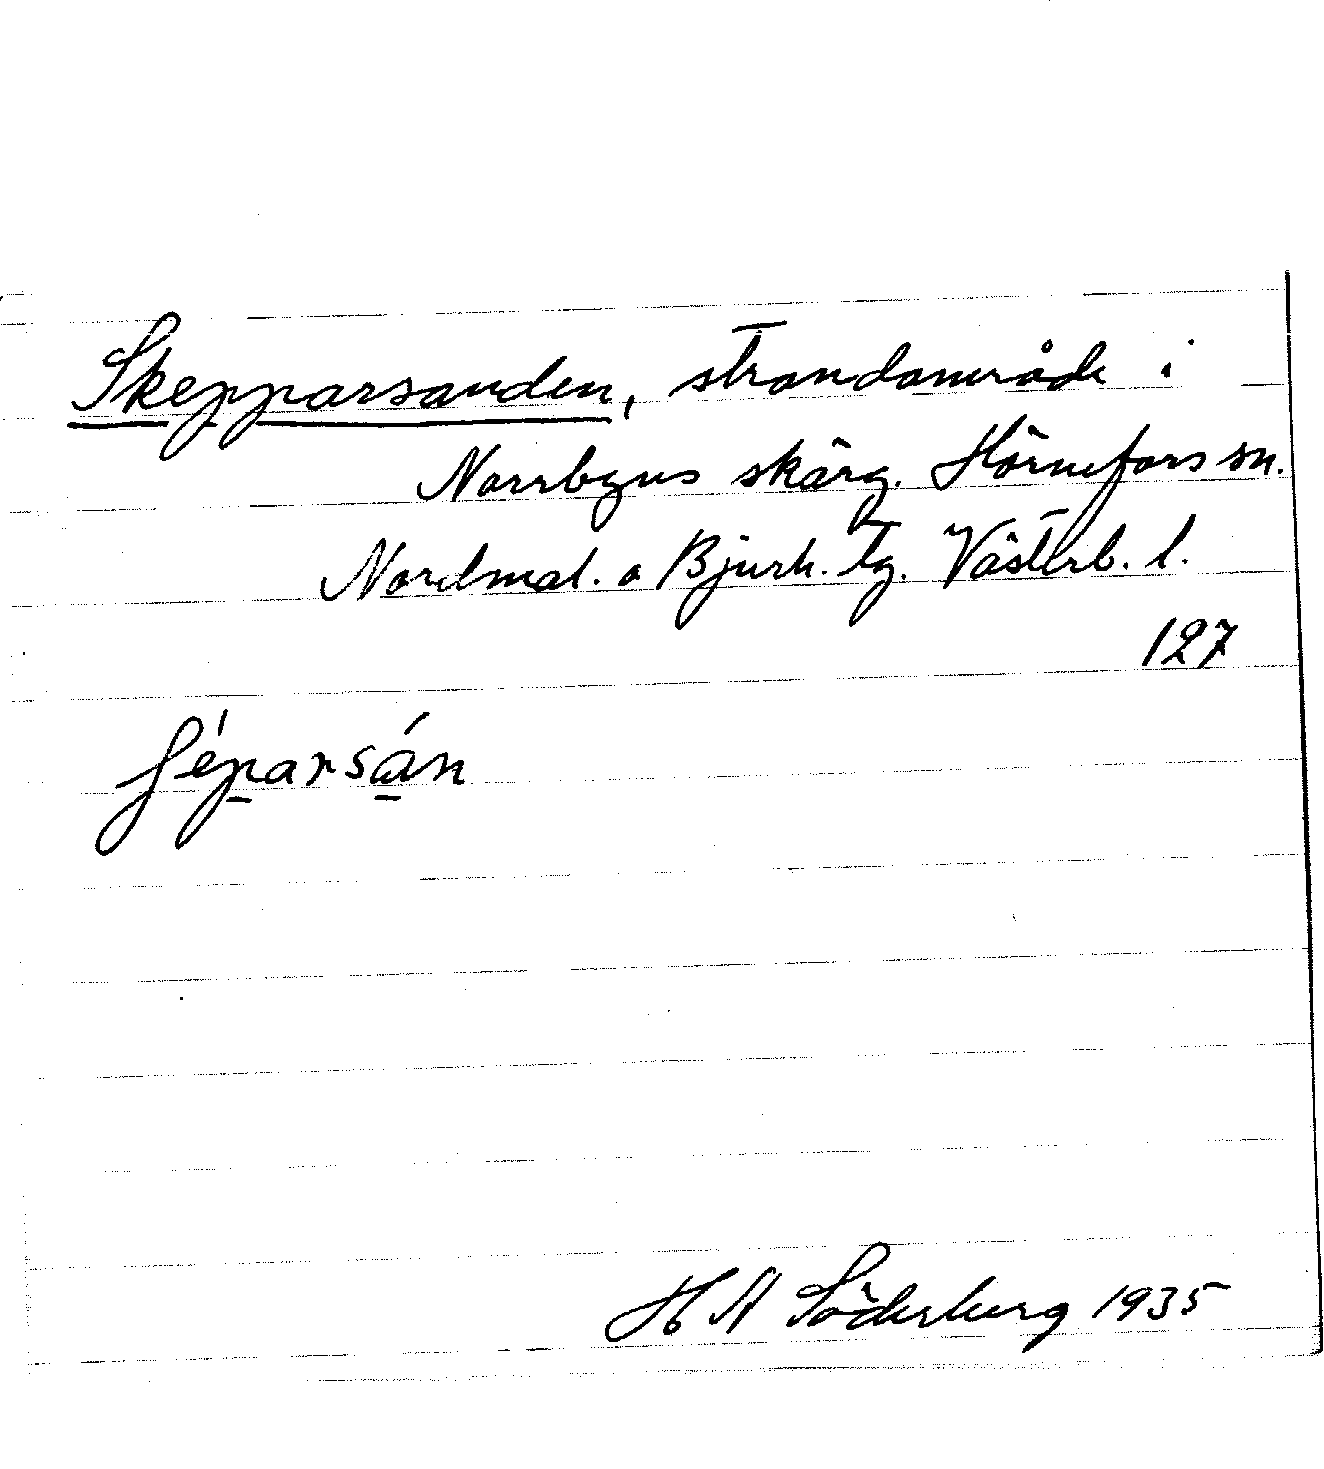 Skepparsanden, strandområde i
Norrbyns skärg. Hörnefors sn.
Nordmal. o Bjurh. tg. Västerb. l.
127
ʃép̱arsá̱n
H A Söderberg 1935